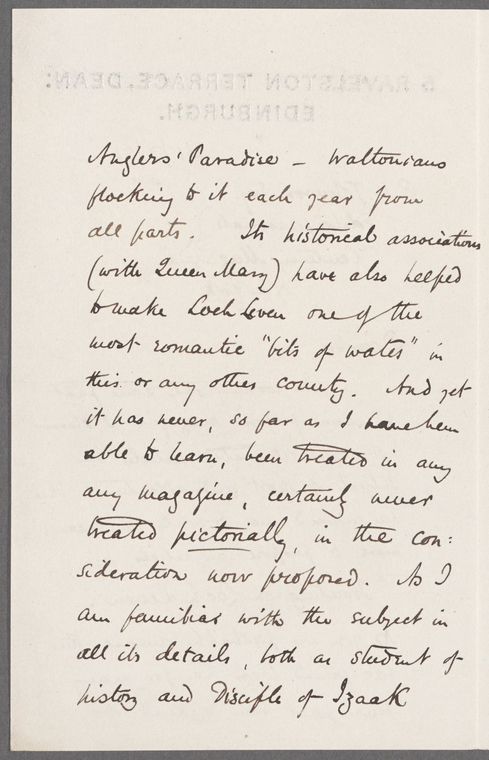 5 RAVELSTON TERRACE, DEAN:
EDINBURGH.
Anglers' Paradise – Waltonians
flocking to it each year from
all parts. Its historical associations
(with Queen Mary) have also helped
to make Loch Leven one of the
most romantic "bits of water" in
this or any other county. And yet
it has never, so far as I have been
able to learn, been treated in any
any magazine, certainly never
treated pictorially, in the con:
sideration now proposed. As I
am familiar with the subject in
all its details, both as student of
history and Disciple of Izaak